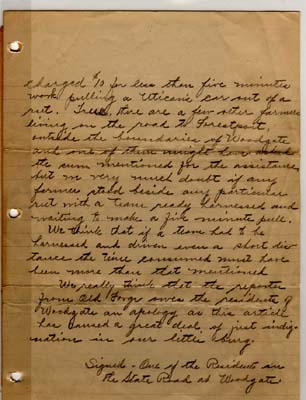 charged $10 for less than five minutes
work pulling a Utican's car out of a
rut. True, there are a few other farmers
living on the road to Forestport,
outside the boundaries of Woodgate
and one of them might have asked
the sum mentioned for the assistance
but we very much doubt if any
farmer stood beside any particular
rut with a team ready harnessed and
waiting to make a five minute pull.
We think that if a team had to be
harnessed and driven even a short dis-
tance the time consumed must have
been more than that mentioned
We really think that the reporter
from Old Forge owes the residents of
Woodgate an apology as this article
has caused a great deal of just indig-
nation in our little burg.
Signed - One of the Residents on
the State Road at Woodgate